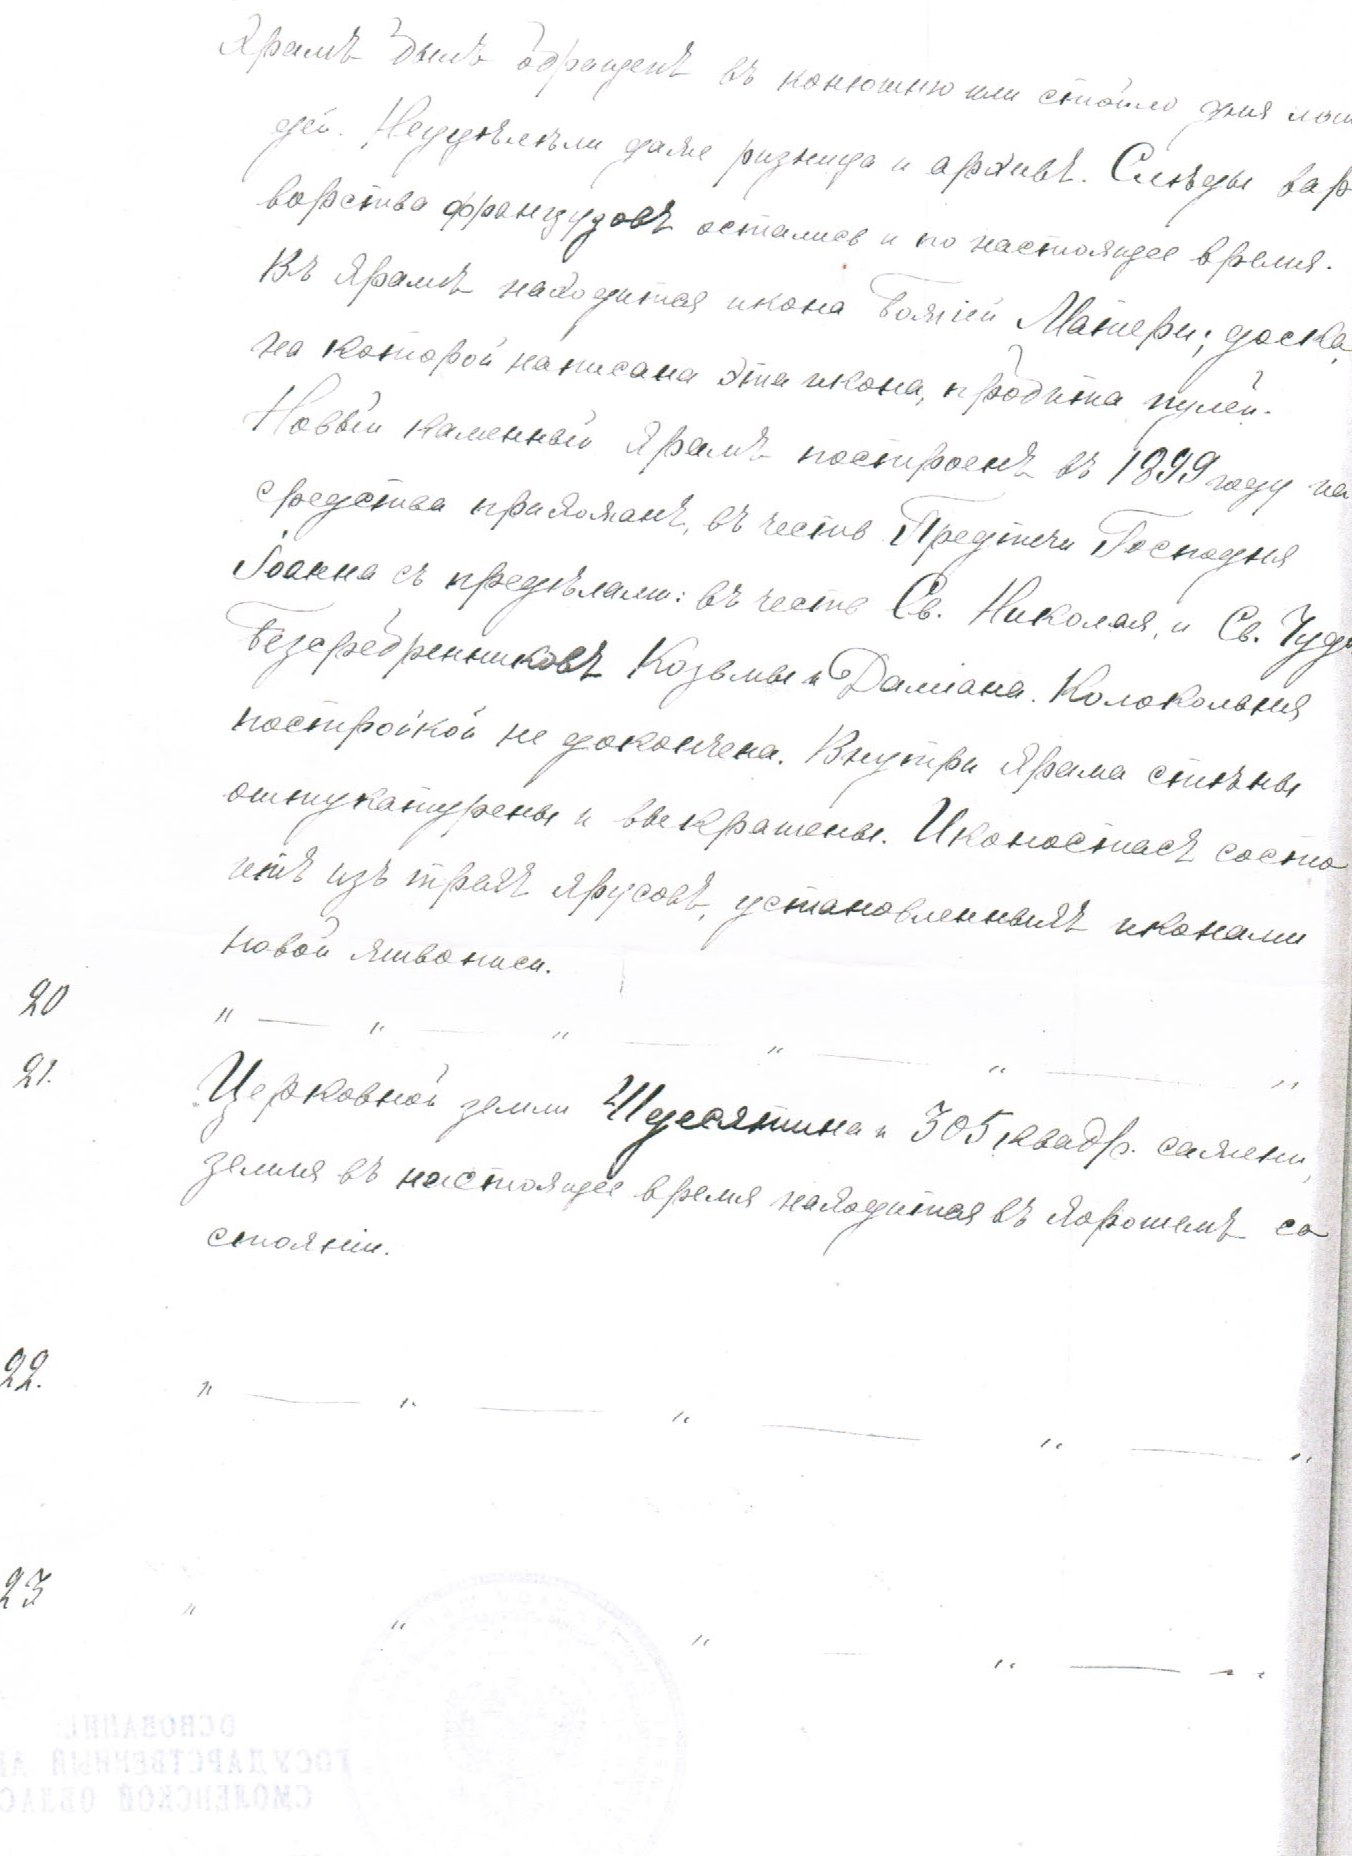 Храмъ былъ обращенъ въ конюшню или стойло для лоша
дей. Неуцѣлѣли даже ризница и архивъ. Слѣды вар
ворства французовъ остались и по настоящее время.
Въ храмѣ находится икона Божіей Матери; доска,
на которой написана эта икона, пробита пулей.
Новый каменный храмъ построенъ въ 1899 году на
средства прихожанъ, въ честь Предтечи Господня
Іоанна съ предѣлами: въ честь Св. Николая, и Св. Чудо
Безсребренниковъ Козьмы и Даміана. Колокольня
постройкой не докончена. Внутри храма стѣны
оштукатурены и выкрашены. Иконостасъ состо
итъ изъ трехъ ярусовъ, установленныхъ иконами
новой живописи.
20 " — " — " — " — " — "
21. Церковной земли 41 десятина и 305 квадр. сажени,
земля въ настоящее время находится въ хорошемъ со
стояніи.
22. " — " — " — " — "
23 " " " — " — "
ОСНОВАНИЕ:
ГОСУДАРСТВЕННЫЙ АР
СМОЛЕНСКОЙ ОБЛАС